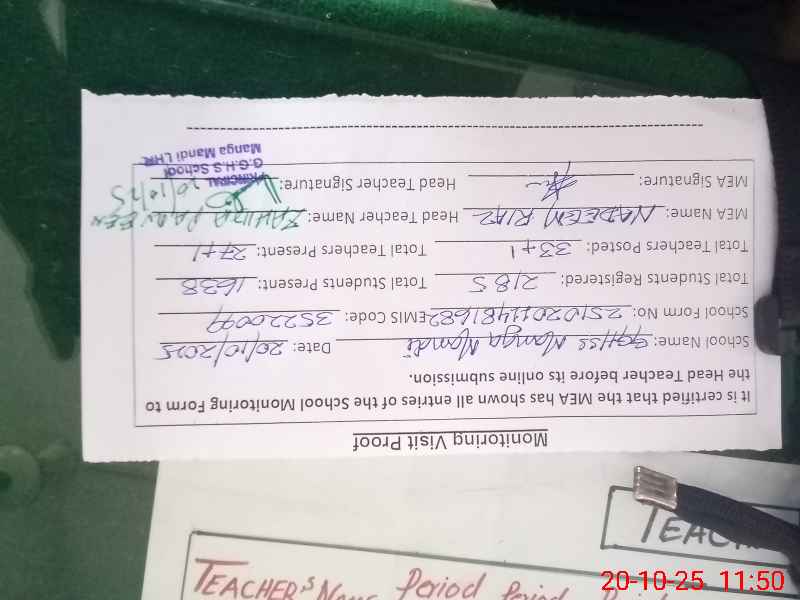 Monitoring Visit Proof
It is certified that the MEA has shown all entries of the School Monitoring Form to
the Head Teacher before its online submission.
School Name: GGHSS Manga Mandi Date: 20/10/2025
School Form No: 2510201148168 2 EMIS Code: 35220099
Total Students Registered: 2185 Total Students Present: 1638
Total Teachers Posted: 33+1 Total Teachers Present: 27+1
MEA Name: NADEEM RIAZ Head Teacher Name: ZAHIDA PARVEEN
MEA Signature: Head Teacher Signature: 20/10/25
PRINCIPAL
G.G.H.S School
Manga Mandi LHR
TEACH
TEACHER'S Name Period Period
20-10-25 11:50